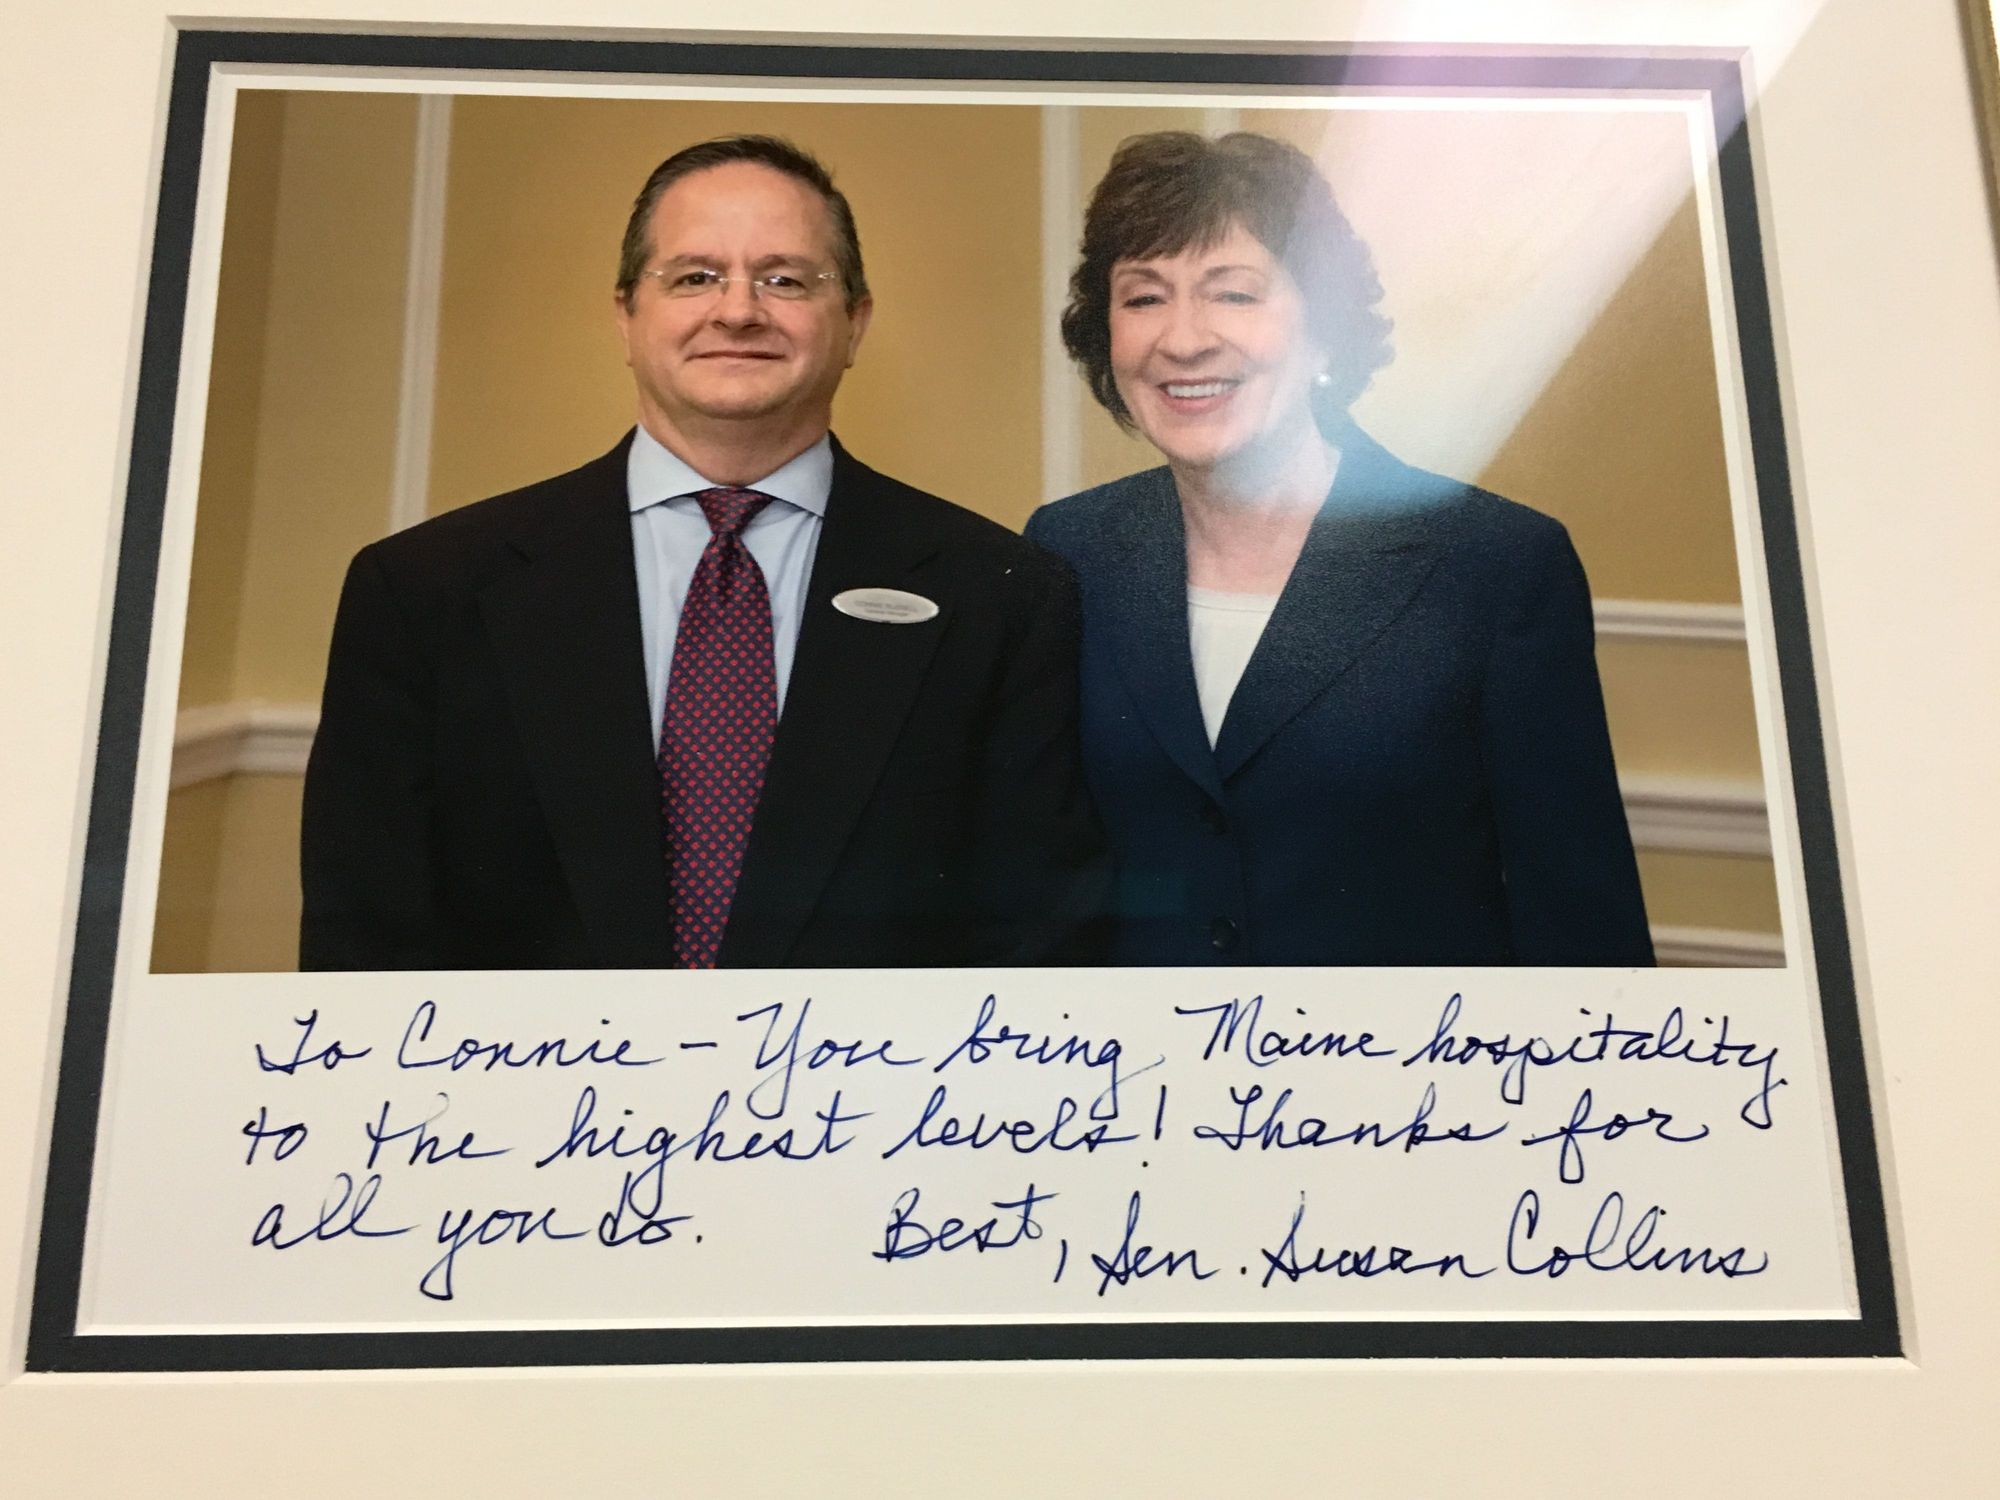 To Connie – You bring Maine hospitality
to the highest levels! Thanks for
all you do. Best, Sen. Susan Collins